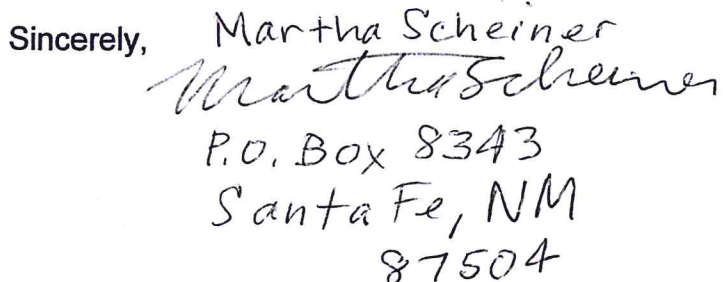 Sincerely, Martha Scheiner
Martha Scheiner
P.O. Box 8343
Santa Fe, NM
87504